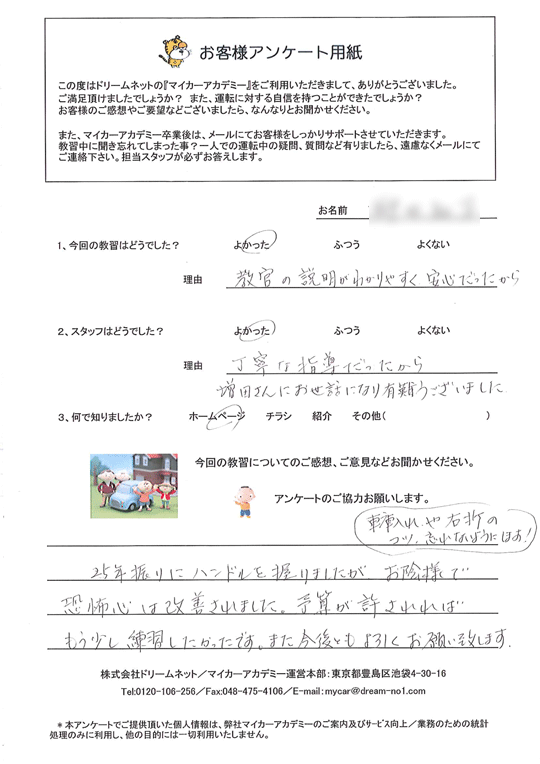 お客様アンケート用紙
この度はドリームネットの『マイカーアカデミー』をご利用いただきまして、ありがとうございました。
ご満足頂けましたでしょうか? また、運転に対する自信を持つことができたでしょうか?
お客様のご感想やご要望などございましたら、なんなりとお聞かせください。
また、マイカーアカデミー卒業後は、メールにてお客様をしっかりサポートさせていただきます。
教習中に聞き忘れてしまった事?一人での運転中の疑問、質問など有りましたら、遠慮なくメールにて
ご連絡下さい。担当スタッフが必ずお答えします。
お名前
1、今回の教習はどうでした? よかった ふつう よくない
理由 教官の説明がわかりやすく安心だったから
2、スタッフはどうでした? よかった ふつう よくない
理由 丁寧な指導だったから
増田さんにお世話になり有難うございました
3、何で知りましたか? ホームページ チラシ 紹介 その他( )
今回の教習についてのご感想、ご意見などお聞かせください。
アンケートのご協力お願いします。
車庫入れや右折の
コツ、忘れないようにします!
25年振りにハンドルを握りましたが、お陰様で
恐怖心は改善されました。予算が許されれば
もう少し練習したかったです。また今後ともよろしくお願い致します。
株式会社ドリームネット/マイカーアカデミー運営本部:東京都豊島区池袋4-30-16
Tel:0120-106-256/Fax:048-475-4106/E-mail:mycar@dream-no1.com
*本アンケートでご提供頂いた個人情報は、弊社マイカーアカデミーのご案内及びサービス向上/業務のための統計
処理のみに利用し、他の目的には一切利用いたしません。